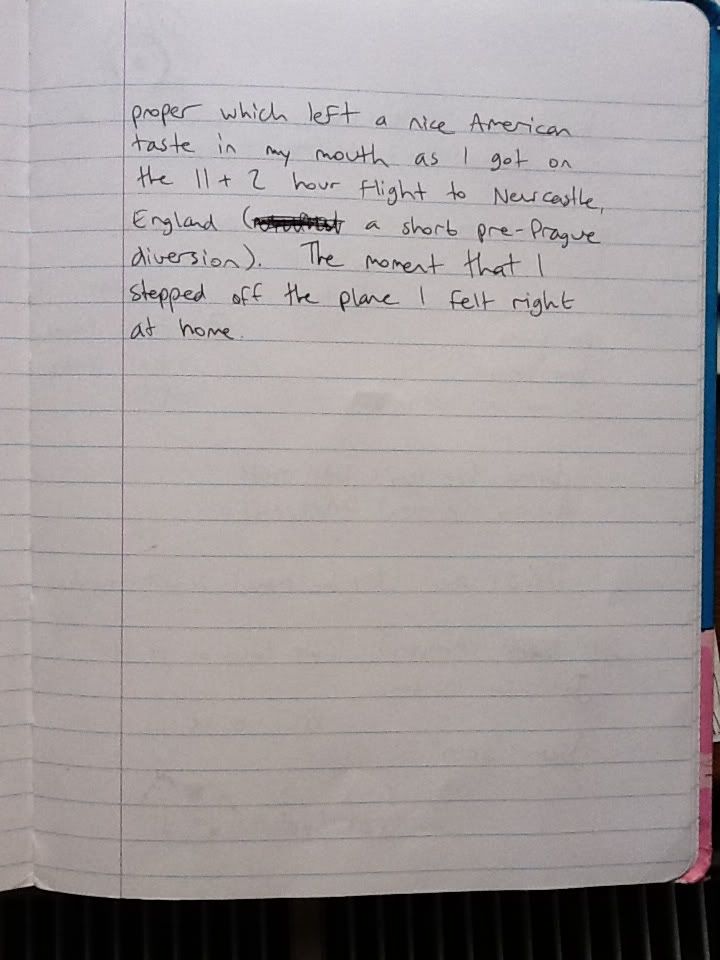 proper which left a nice American
taste in my mouth as I got on
the 11 + 2 hour flight to Newcastle,
England ( a short pre-Prague
diversion). The moment that I
stepped off the plane I felt right
at home.